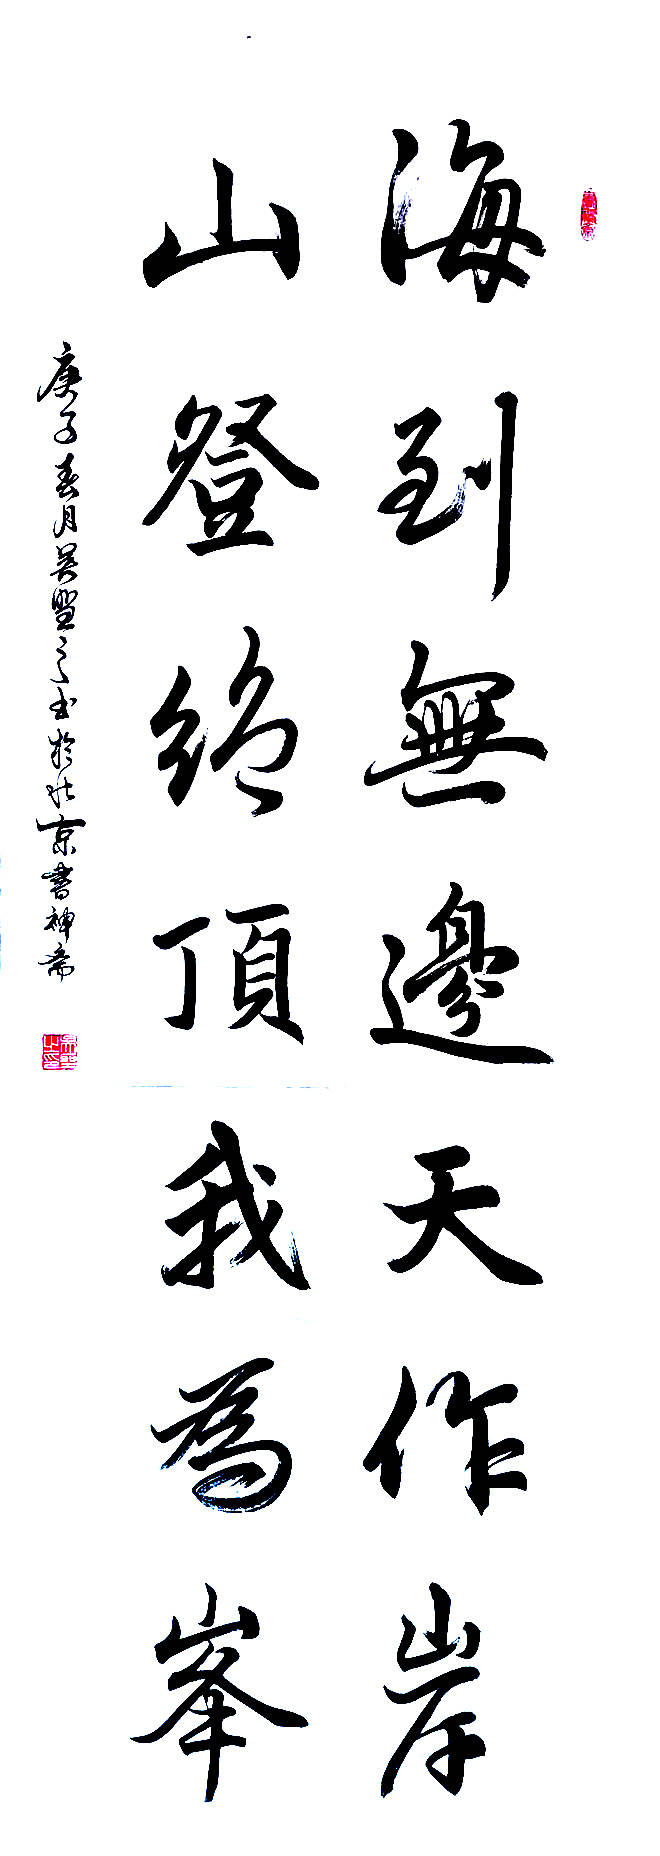 海到無邊天作岸
山登絕頂我為峯
庚子春月吴聖之书於北京書神斋